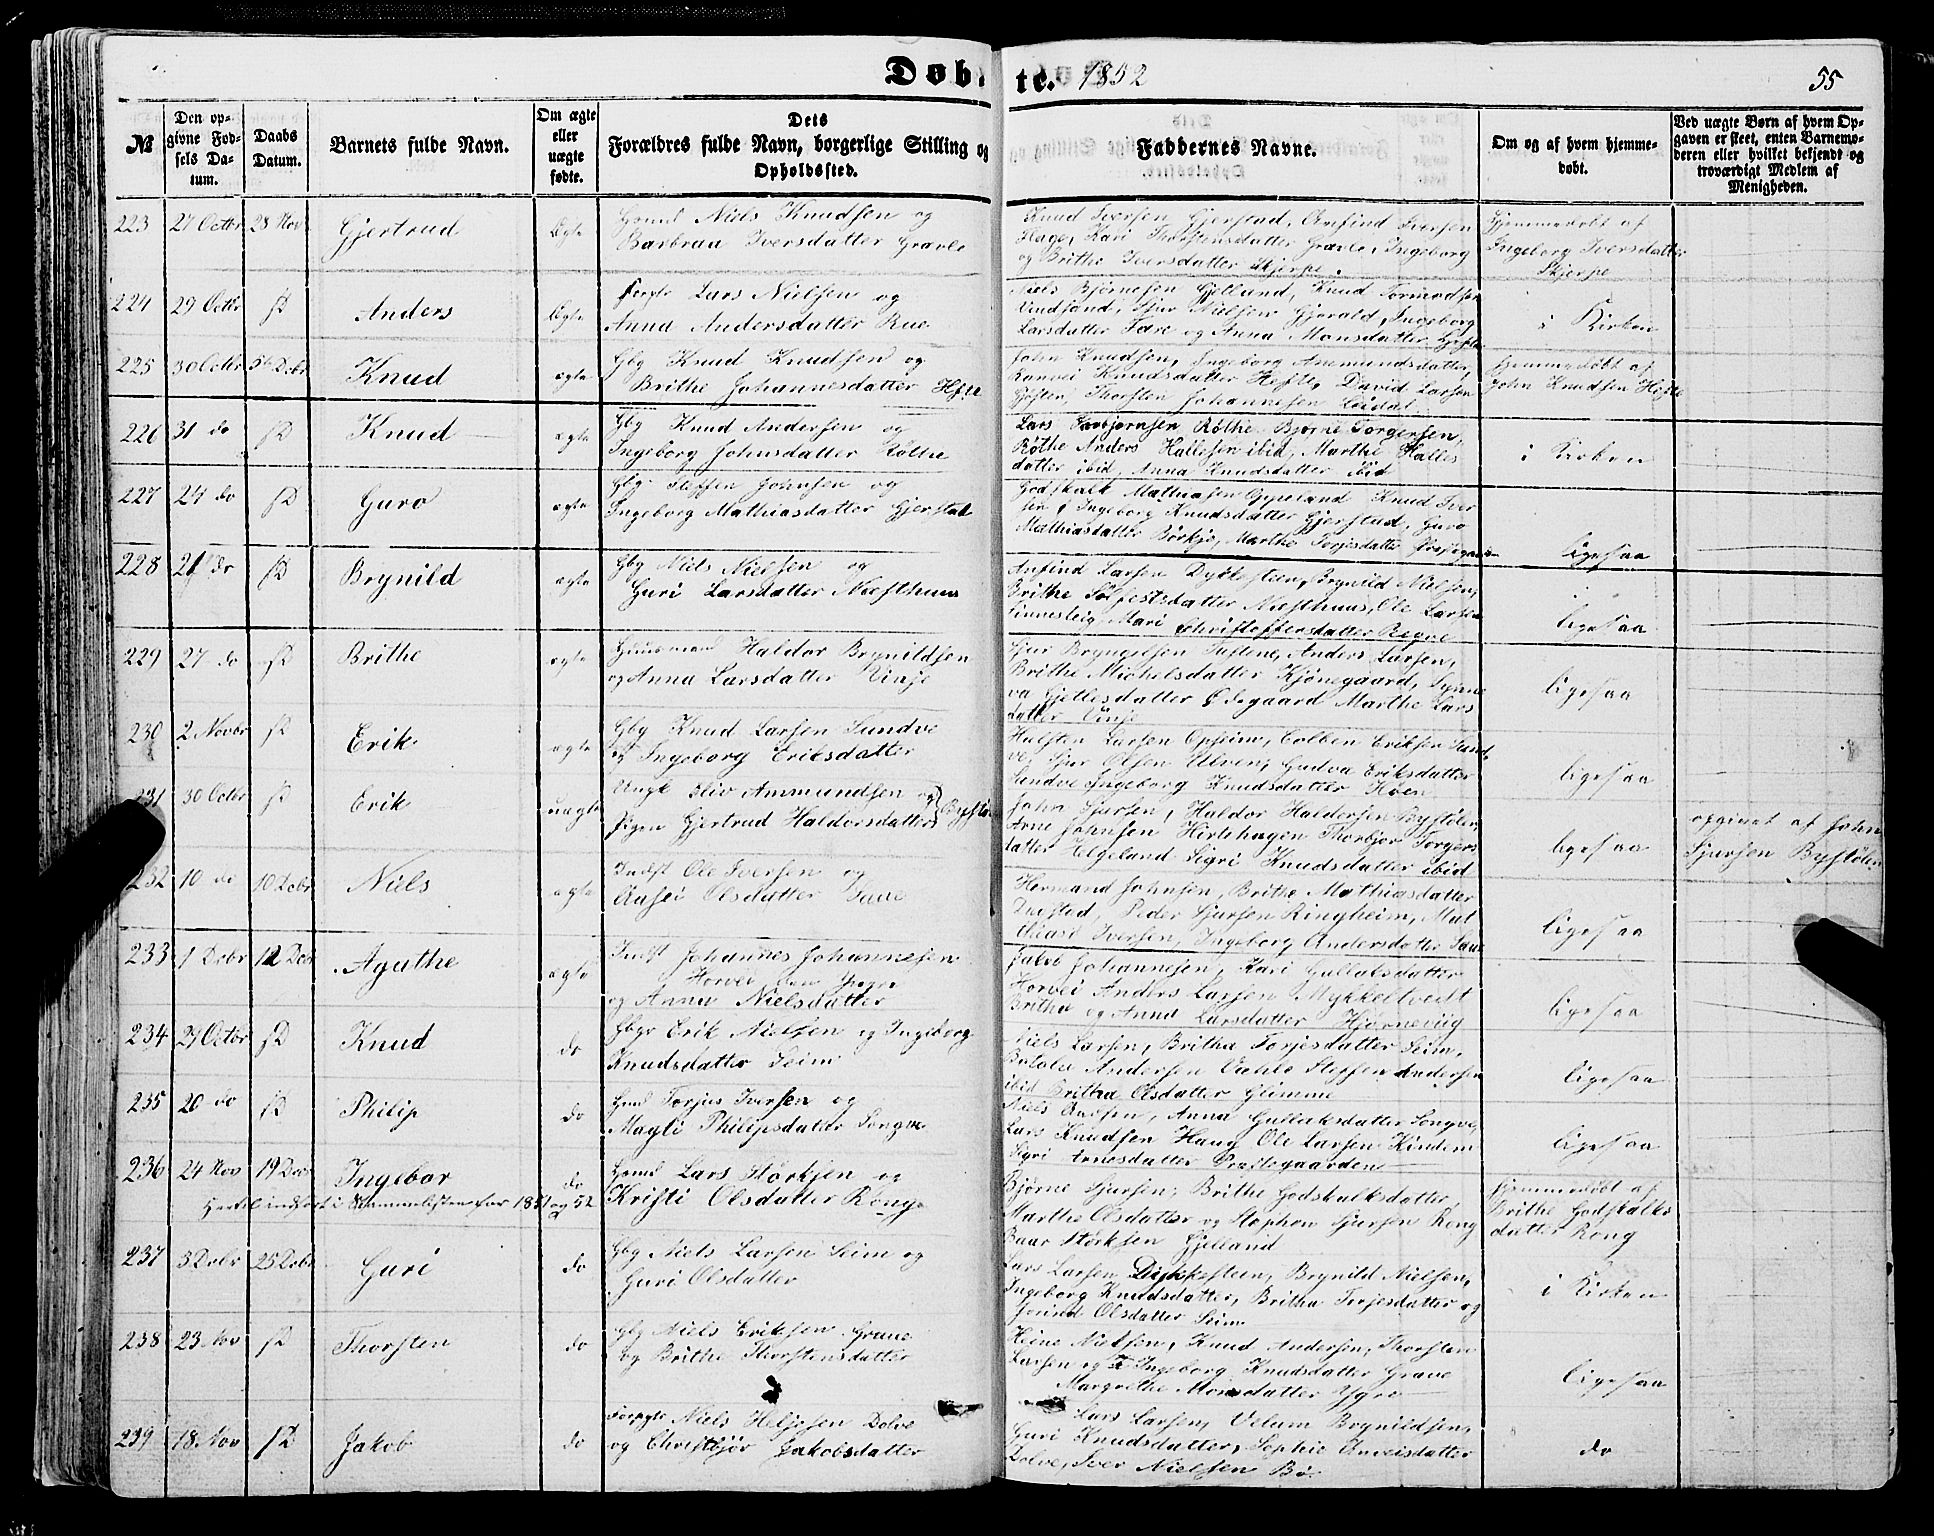 Døbte. 1852
55
№
Den opgivne Fødsels Datum.
Daabs Datum.
Barnets fulde Navn.
Om ægte eller uægte fødte.
Dets Forældres fulde Navn, borgerlige Stilling og Opholdssted.
Faddernes Navne.
Om og af hvem hjemmedøbt.
Ved uægte Børn af hvem Opgaven er skeet, enten Barnemoderen eller hvilket bekjendt og troværdigt Medlem af Menigheden.
223 27 Octbr 28 Nov Gjertrud Ægte
Niels Knudsen og
Barbraa Iversdatter Gravle
Knud Iversen Gjerstad, Amfind Iversen
Hage, Kari Thorstensdatter Gravle, Ingeborg
og Brithe Iversdatter Skjerpe.
Hjemmedøbt af
Ingeborg Iversdatter
Skjerpe
224 29 Octbr Anders Ægte
Lars Nielsen og
Anna Andersdatter Rue
Niels Bjørnesen Gjelland, Knud Tormodsen
Sjur Nielsen Gjerald, Ingeborg
Larsdatter og Anna Monsdatter
i Kirken
225 30 Octbr 5t Decbr Knud ægte
Gbg Knud Knudsen og
Brithe Johannesdatter Hefte
John Knudsen, Ingeborg Anemundsdatter,
Ranvei Knudsdatter Hefte, David Larsen
Thorsten Johannesen Leidal
Hjemmedøbt af
John Knudsen Hefte
226 31 do Knud ægte
Gbg Knud Andersen og
Ingeborg Johnsdatter Røthe
Lars Røthe Bjørne Torgersen,
Røthe Anders Hallesen ibid, Marthe Halles
datter ibid, Anna Knudsdatter ibid
i Kirken
227 24 do Guro ægte
Gbg Steffen Johnsen og
Ingeborg Mathiasdatter Gjerstad
Godskalk Mathiasen Gypeland Knud Iver
sen & Ingeborg Knudsdatter Gjerstad, Guro
Mathiasdatter Børkje, Marthe Torjesdatter
ligesaa
228 21 do Brynild ægte
Gbg Niels Nielsen og
Guri Larsdatter Næsthuus
Anfind Larsen Dykkesteen, Brynild Nielsen,
Brithe Sølfestsdatter Næsthuus, Ole Larsen
Finnesleig, Mari Christoffersdatter Rogne
ligesaa
229 27 do Brithe ægte
Huusmand Haldor Brynildsen
og Anna Larsdatter Vinje
Sjur Bryngelsen Tuftene, Anders Larsen,
Brithe Michelsdatter Kjønegaard, Synne
va Gjellesdatter Ødegaard Marthe Lars
datter Vinje
ligesaa
230 2 Novbr Erik ægte
Gbg Knud Larsen Sundve
og Ingeborg Eriksdatter
Halsten Larsen Opheim, Colben Eriksen Sund
ve, Sjur Olsen Ulven, Gudva Eriksdatter
Sundve Ingeborg Knudsdatter Hoen
ligesaa
231 30 Octbr Erik uægte
Ungk Eliv Ammundsen og
Pigen Gjertrud Haldorsdatter Bystølen
John Sjursen, Haldor Haldorsen Bystølen,
Arne Johnsen Hirtehagen Thorbjør Torgers
datter Helgeland Sigri Knudsdatter ibid
ligesaa
opgivet af John
Sjursen Bystølen
232 10 do 10 Decbr Niels ægte
Indst Ole Iversen og
Olsdatter Saue
Hermand Johnsen, Brithe Mathiasdatter
Peder Sjursen Ringheim, Mat
thias Iversen, Ingeborg Andersdatter Saue
ligesaa
233 1 Decbr 12 Dec Agathe ægte
Indst Johannes Johannesen
Horvei den yngre
og Anna Nielsdatter
Jakob Johannesen, Kari Gullaksdatter
Horvei Anders Larsen Mykkeltvedt
Britha og Anna Larsdatter Hjørneviig
ligesaa
234 29 Octbr Knud do
Gbgr Erik Nielsen og Ingeborg
Knudsdatter Seim
Niels Larsen, Britha Torjesdatter Seim,
Botolv Andersen Væhle Steffen Andersen
ibid Britha Olsdatter Glimme
ligesaa
235 20 do Philip do
Torjus Iversen og
Magli Philipsdatter Songve
Niels Anna Gullaksdatter Songve,
Lars Knudsen Haug Ole Larsen Kindem
Sigri Arnesdatter Præstegaarden
ligesaa
236 24 Nov 19 Dec Ingebor do
Lars Størksen og
Kristi Olsdatter Rong
Bjørne Sjursen, Brithe Godskalksdatter,
Marthe Olsdatter og Stephen Sjursen Rong
Baar Størksen Gjelland
Hjemmedøbt af
Brithe Godskalks
datter Rong
Hertil indført i Skemmelisten for 1851 og 52
237 3 Decbr 25 Decbr Guri do
Gbg Niels Larsen Seim og
Guri Olsdatter
Lars Larsen Dykkesteen, Brynild Nielsen,
Ingeborg Knudsdatter, Britha Torjesdatter og
Jorend Olsdatter Seim
i Kirken
238 23 Nov Thorsten do
Gbg Niels Eriksen Grave
og Brithe Thorstensdatter
Heine Nielsen, Knud Andersen, Thorsten
Larsen og Ingeborg Knudsdatter Grave
Margrethe Monsdatter Ygre
ligesaa
239 18 Nov Jakob do
Forpgtr Niels Heljesen Dolve
og Christbjør Jakobsdatter
Lars Larsen, Velum Brynildsen,
Guri Knudsdatter, Sophie
Dolve, Iver Nielsen Bø
do